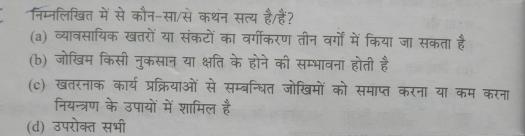 निम्नलिखित में से कौन-सा/से कथन सत्य है/हैं?
(a) व्यावसायिक खतरों या संकटों का वर्गीकरण तीन वर्गों में किया जा सकता है
(b) जोखिम किसी नुकसान या क्षति के होने की सम्भावना होती है
(c) खतरनाक कार्य प्रक्रियाओं से सम्बन्धित जोखिमों को समाप्त करना या कम करना
नियन्त्रण के उपायों में शामिल है
(d) उपरोक्त सभी